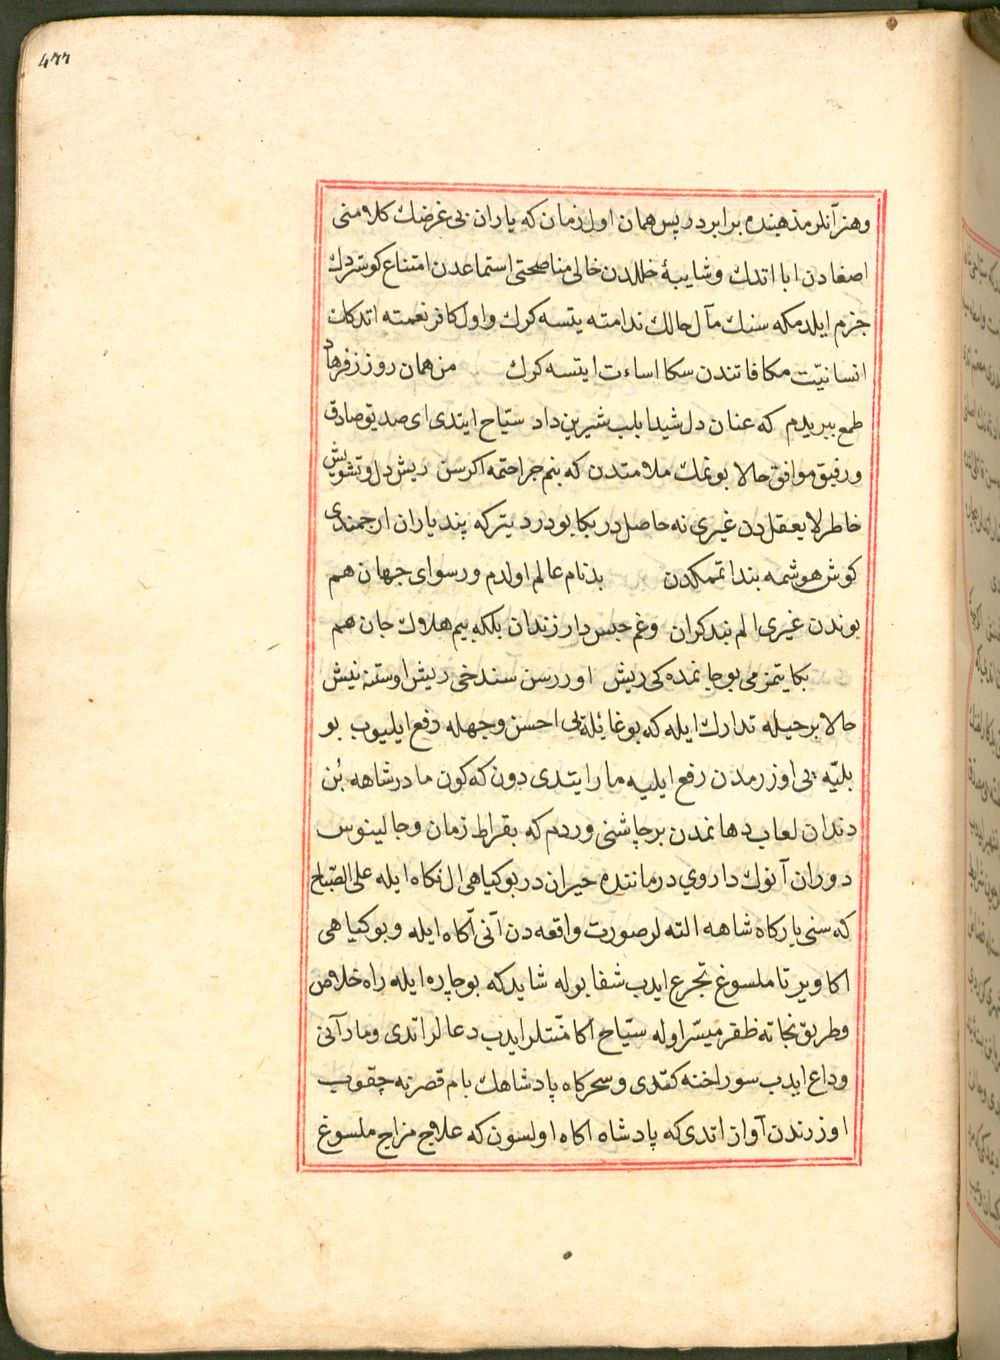 477
وهنر آنلر مذهبنده برابردر پس همان اول زمان که یاران بی غرضك كلامنی
اصغادن ابا اتدك وشایبۀ خللدن خالی مناصحتی استماعدن امتناع کوستردك
جزم ایلدمکه سنك مآل حالك ندامته یتسه کرك واول کافر نعمته اتدکك
انسانیّت مکافاتندن سکا اساءت ایتسه کرك من همان روز ز فرهاد
طمع ببریدم که عنان دل شیدا بلب شیرین داد سیّاح ایتدی ای صدیق صادق
ورفیق موافق حالا بو نمك ملامتدن که بنم جراحتمه اکرسن ریش دل وتشویش
خاطر لایعقلدن غیری نه حاصلدر بکا بو درد یتر که پند یاران ارجمندی
کوش هوشمه بند اتمکدن بدنام عالم اولدم ورسوای جهان هم
بوندن غیری الم بند کران وغم حبس دار زندان بلکه بیم هلاك جان هم
بکا یتمزمی بو جانمده کی ریش اوررسن سندخی ریش اوستنه نیش
حالا بر حیله تدارك ایله که بو غائله یی احسن وجهله دفع ایلیوب بو
بلیّه یی اوزرمدن رفع ایلیه مار ایتدی دون که کون مادر شاهه بُن
دندان لعاب دهانمدن بر چاشنی وردم که بقراط زمان وجالینوس
دوران آنوك داروی درماننده حیراندر بو کیاهی ال نکاه ایله علی الصّباح
که سنی بارکاه شاهه الته لر صورت واقعه دن آنی آکاه ایله وبو کیاهی
اکا ویر تا ملسوغ تجرع ایدب شفا بوله شاید که بو چاره ایله راه خلاص
وطریق نجاته ظفر میسّر اوله سیّاح اکا منّتلر ایدب دعالر اتدی ومار آنی
وداع ایدب سوراخنه کتدی وسحرکاه پادشاهك بام قصرنه چقوب
اوزرندن آواز اتدی که پادشاه اکاه اولسون که علاج مزاج ملسوغ